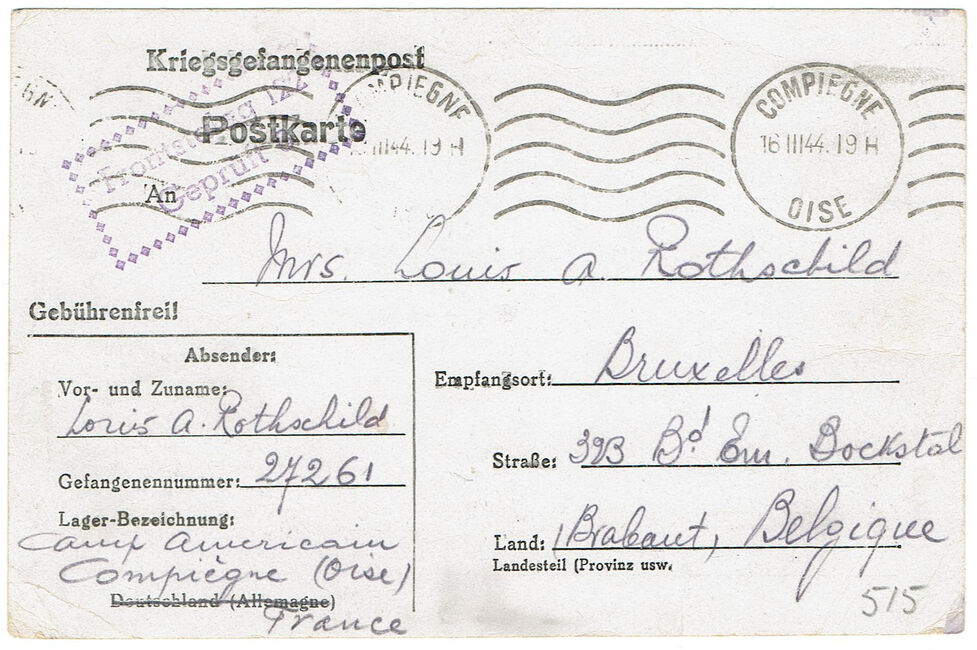 Kriegsgefangenenpost
Postkarte
Frontstalag 122
Geprüft
COMPIEGNE
III44. 19 H
COMPIEGNE
16 III 44. 19 H
OISE
An
Mrs. Louis A. Rothschild
Gebührenfrei!
Absender:
Vor- und Zuname:
Louis A. Rothschild
Gefangenennummer: 27261
Lager-Bezeichnung:
Camp Americain
Compiègne (Oise)
Deutschland (Allemagne)
France
Empfangsort: Bruxelles
Straße: 393 Bd Em. Bockstal
Land: Brabant, Belgique
Landesteil (Provinz usw.
515